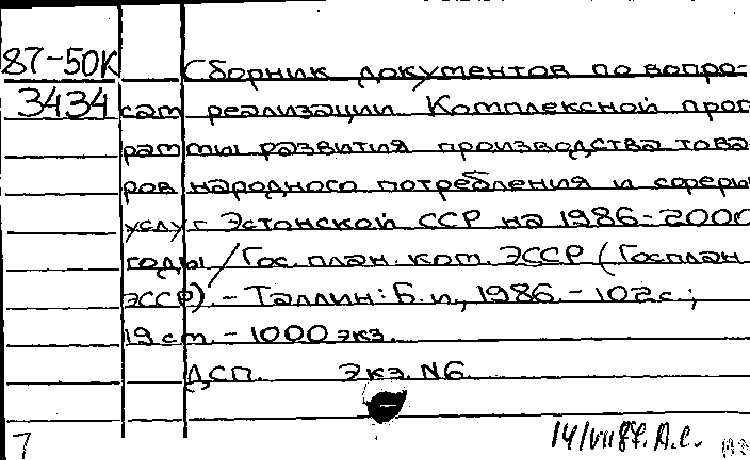 87-50К Сборник документов по вопро-
3434 сам реализации Комплексной прог
раммы развития производства това
ров народного потребления и сферы
услуг Эстонской ССР на 1986-2000
годы / Гос. план. ком. ЭССР (Госплан
ЭССР). - Таллин: Б. и., 1986. - 102 с.;
19 см. - 1000 экз.
ДСП. Экз. N6
14/VII 87. А.С.
7